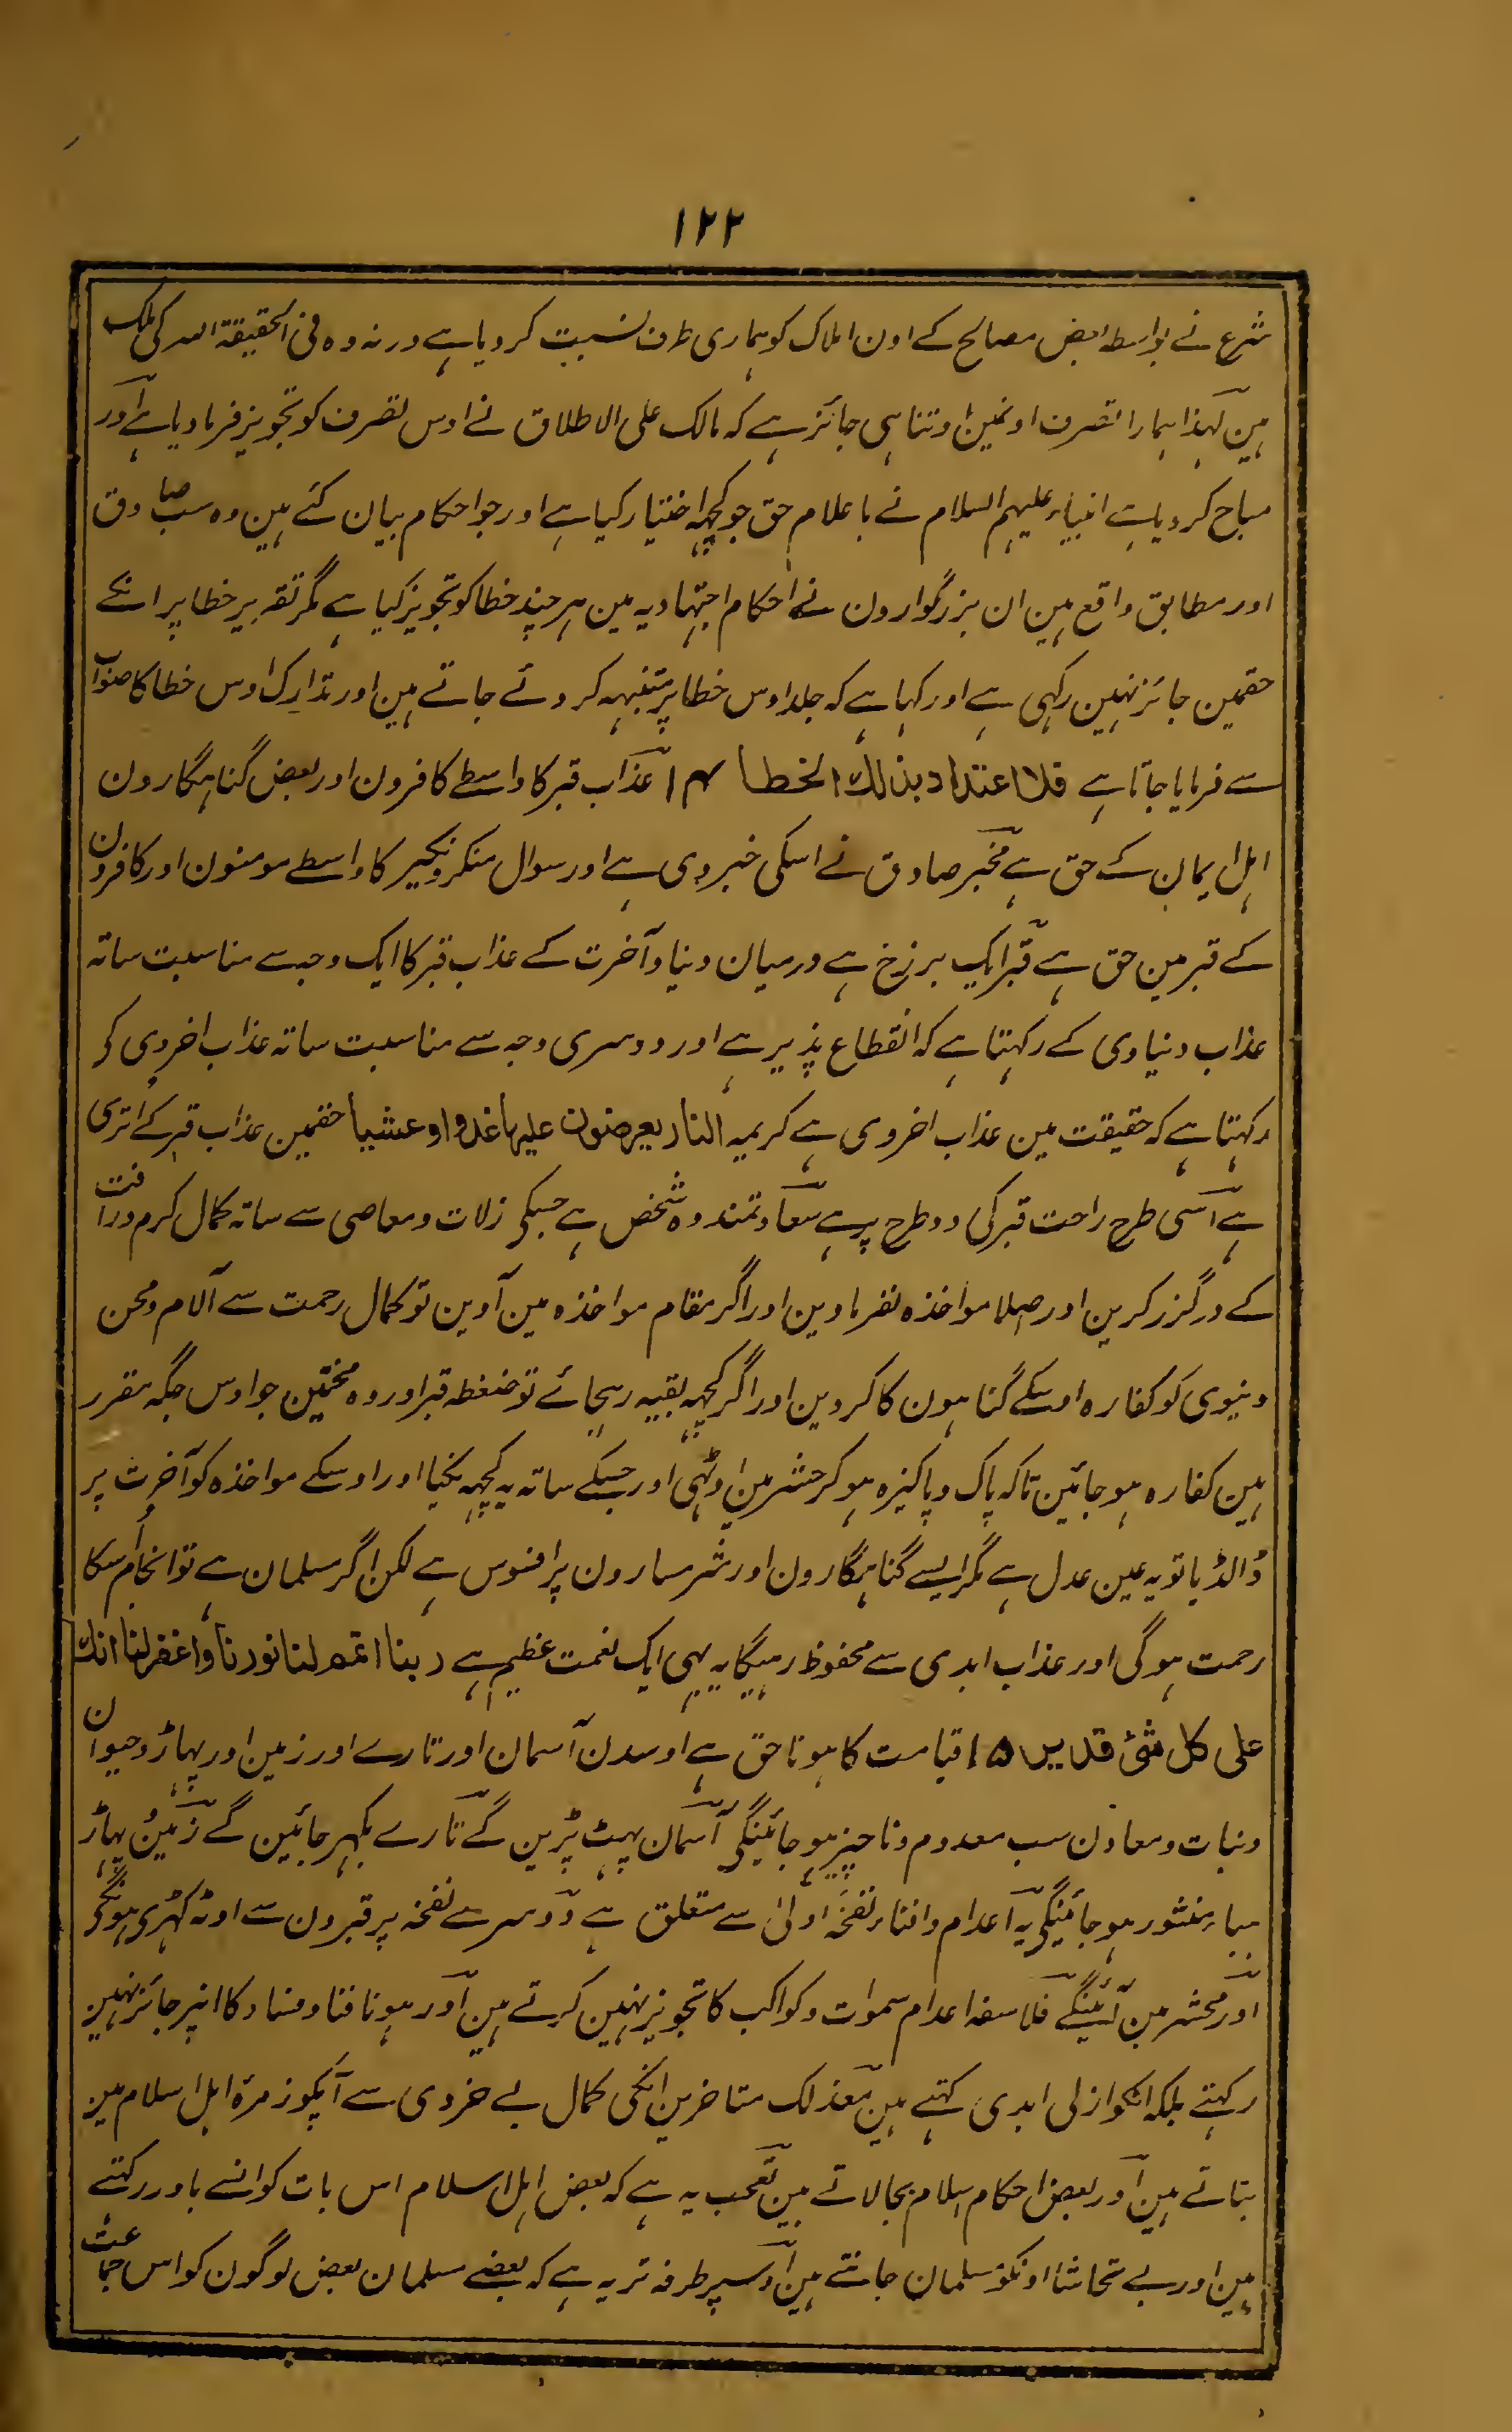 ۱۲۲
شرع نے بواسطہ بعض مصالح کے اون املاک کو ہماری طرف نسبت کر دیا ہے ورنہ وہ فی الحقیقۃ اللہ کی ملک
ہین لہذا ہمارا تصرف اونمین اوتنا ہی جائز ہے کہ مالک علی الاطلاق نے اوس تصرف کو تجویز فرما دیا ہے اور
مباح کر دیا ہے انبیاء علیہم السلام نے باعلام حق جو کچہہ اختیار کیا ہے اور جو احکام بیان کئے ہین وہ سب صادق
اور مطابق واقع ہین ان بزرگوارون نے احکام اجتہادیہ مین ہرچند خطا کو تجویز کیا ہے مگر تقریر خطا پر انکے
حقمین جائز نہین رکہی ہے اور کہا ہے کہ جلد اوس خطا پر متنبہہ کر دئے جاتے ہین اور تدارک اوس خطا کا صواب
سے فرمایا جاتا ہے فلا اعتداد بذالك الخطا ۱۴ عذاب قبر کا واسطے کافرون اور بعض گناہگارون
اہل ایمان کے حق ہے مخبر صادق نے اسکی خبر دی ہے اور سوال منکر و نکیر کا واسطے مومنون اور کافرون
کے قبر مین حق ہے قبر ایک برزخ ہے درمیان دنیا و آخرت کے عذاب قبر کا ایک وجہ سے مناسبت ساتہ
عذاب دنیاوی کے رکہتا ہے کہ انقطاع پذیر ہے اور دوسری وجہ سے مناسبت ساتہ عذاب اخروی کے
رکہتا ہے کہ حقیقت مین عذاب اخروی ہے کریمہ النار يعرضون عليها غدوا وعشيا حقمین عذاب قبر کے اتری
ہے اسی طرح راحت قبر کی دو طرح پر ہے سعادتمند وہ شخص ہے جسکی زلات و معاصی سے ساتہ کمال کرم و رافت
کے درگزر کرین اور اصلا مواخذہ نفرماوین اور اگر مقام مواخذہ مین آوین تو کمال رحمت سے آلام و محن
دنیوی کو کفارہ اوسکے گناہون کا کر دین اور اگر کچہہ بقیہ رہجائے تو ضغطہ قبر اور وہ محنتین جو اوس جگہ مقرر
ہین کفارہ ہو جائین تاکہ پاک و پاکیزہ ہو کر حشر مین اوٹہی اور جسکے ساتہ یہ کچہہ نکیا اور اوسکے مواخذہ کو آخرت پر
ڈالدیا تو یہ عین عدل ہے مگر ایسے گناہگارون اور شرمسارون پر افسوس ہے لکن اگر مسلمان ہے تو انجام اسکا
رحمت ہوگی اور عذاب ابدی سے محفوظ رہیگا یہ بہی ایک نعمت عظیم ہے ربنا اتمم لنا نورنا واغفر لنا انك
على كل شئ قدير ۱۵ قیامت کا ہونا حق ہے اوسدن آسمان اور تارے اور زمین اور پہاڑ و حیوان
و نبات و معادن سب معدوم و ناچیز ہو جائینگی آسمان پہٹ پڑین گے تارے بکہر جائین گے زمین و پہاڑ
ہباء منثور ہو جائینگی یہ اعدام و افناء نفخہ اولی سے متعلق ہے دوسرے نفخہ پر قبرون سے اوٹہ کہڑی ہونگی
اور محشر مین آئینگے فلاسفہ اعدام سموات و کواکب کا تجویز نہین کرتے ہین اور ہونا فنا و فساد کا انپر جائز نہین
رکہتے بلکہ انکو ازلی ابدی کہتے ہین معذلک متاخرین انکی کمال بے خردی سے آپکو زمرۂ اہل اسلام مین
بتاتے ہین اور بعض احکام اسلام بجالاتے ہین تعجب یہ ہے کہ بعض اہل اسلام اس بات کو انسے باور رکہتے
ہین اور بے تحاشا اونکو مسلمان جانتے ہین اوسپر طرفہ تر یہ ہے کہ بعضے مسلمان بعض لوگون کو اس جماعت